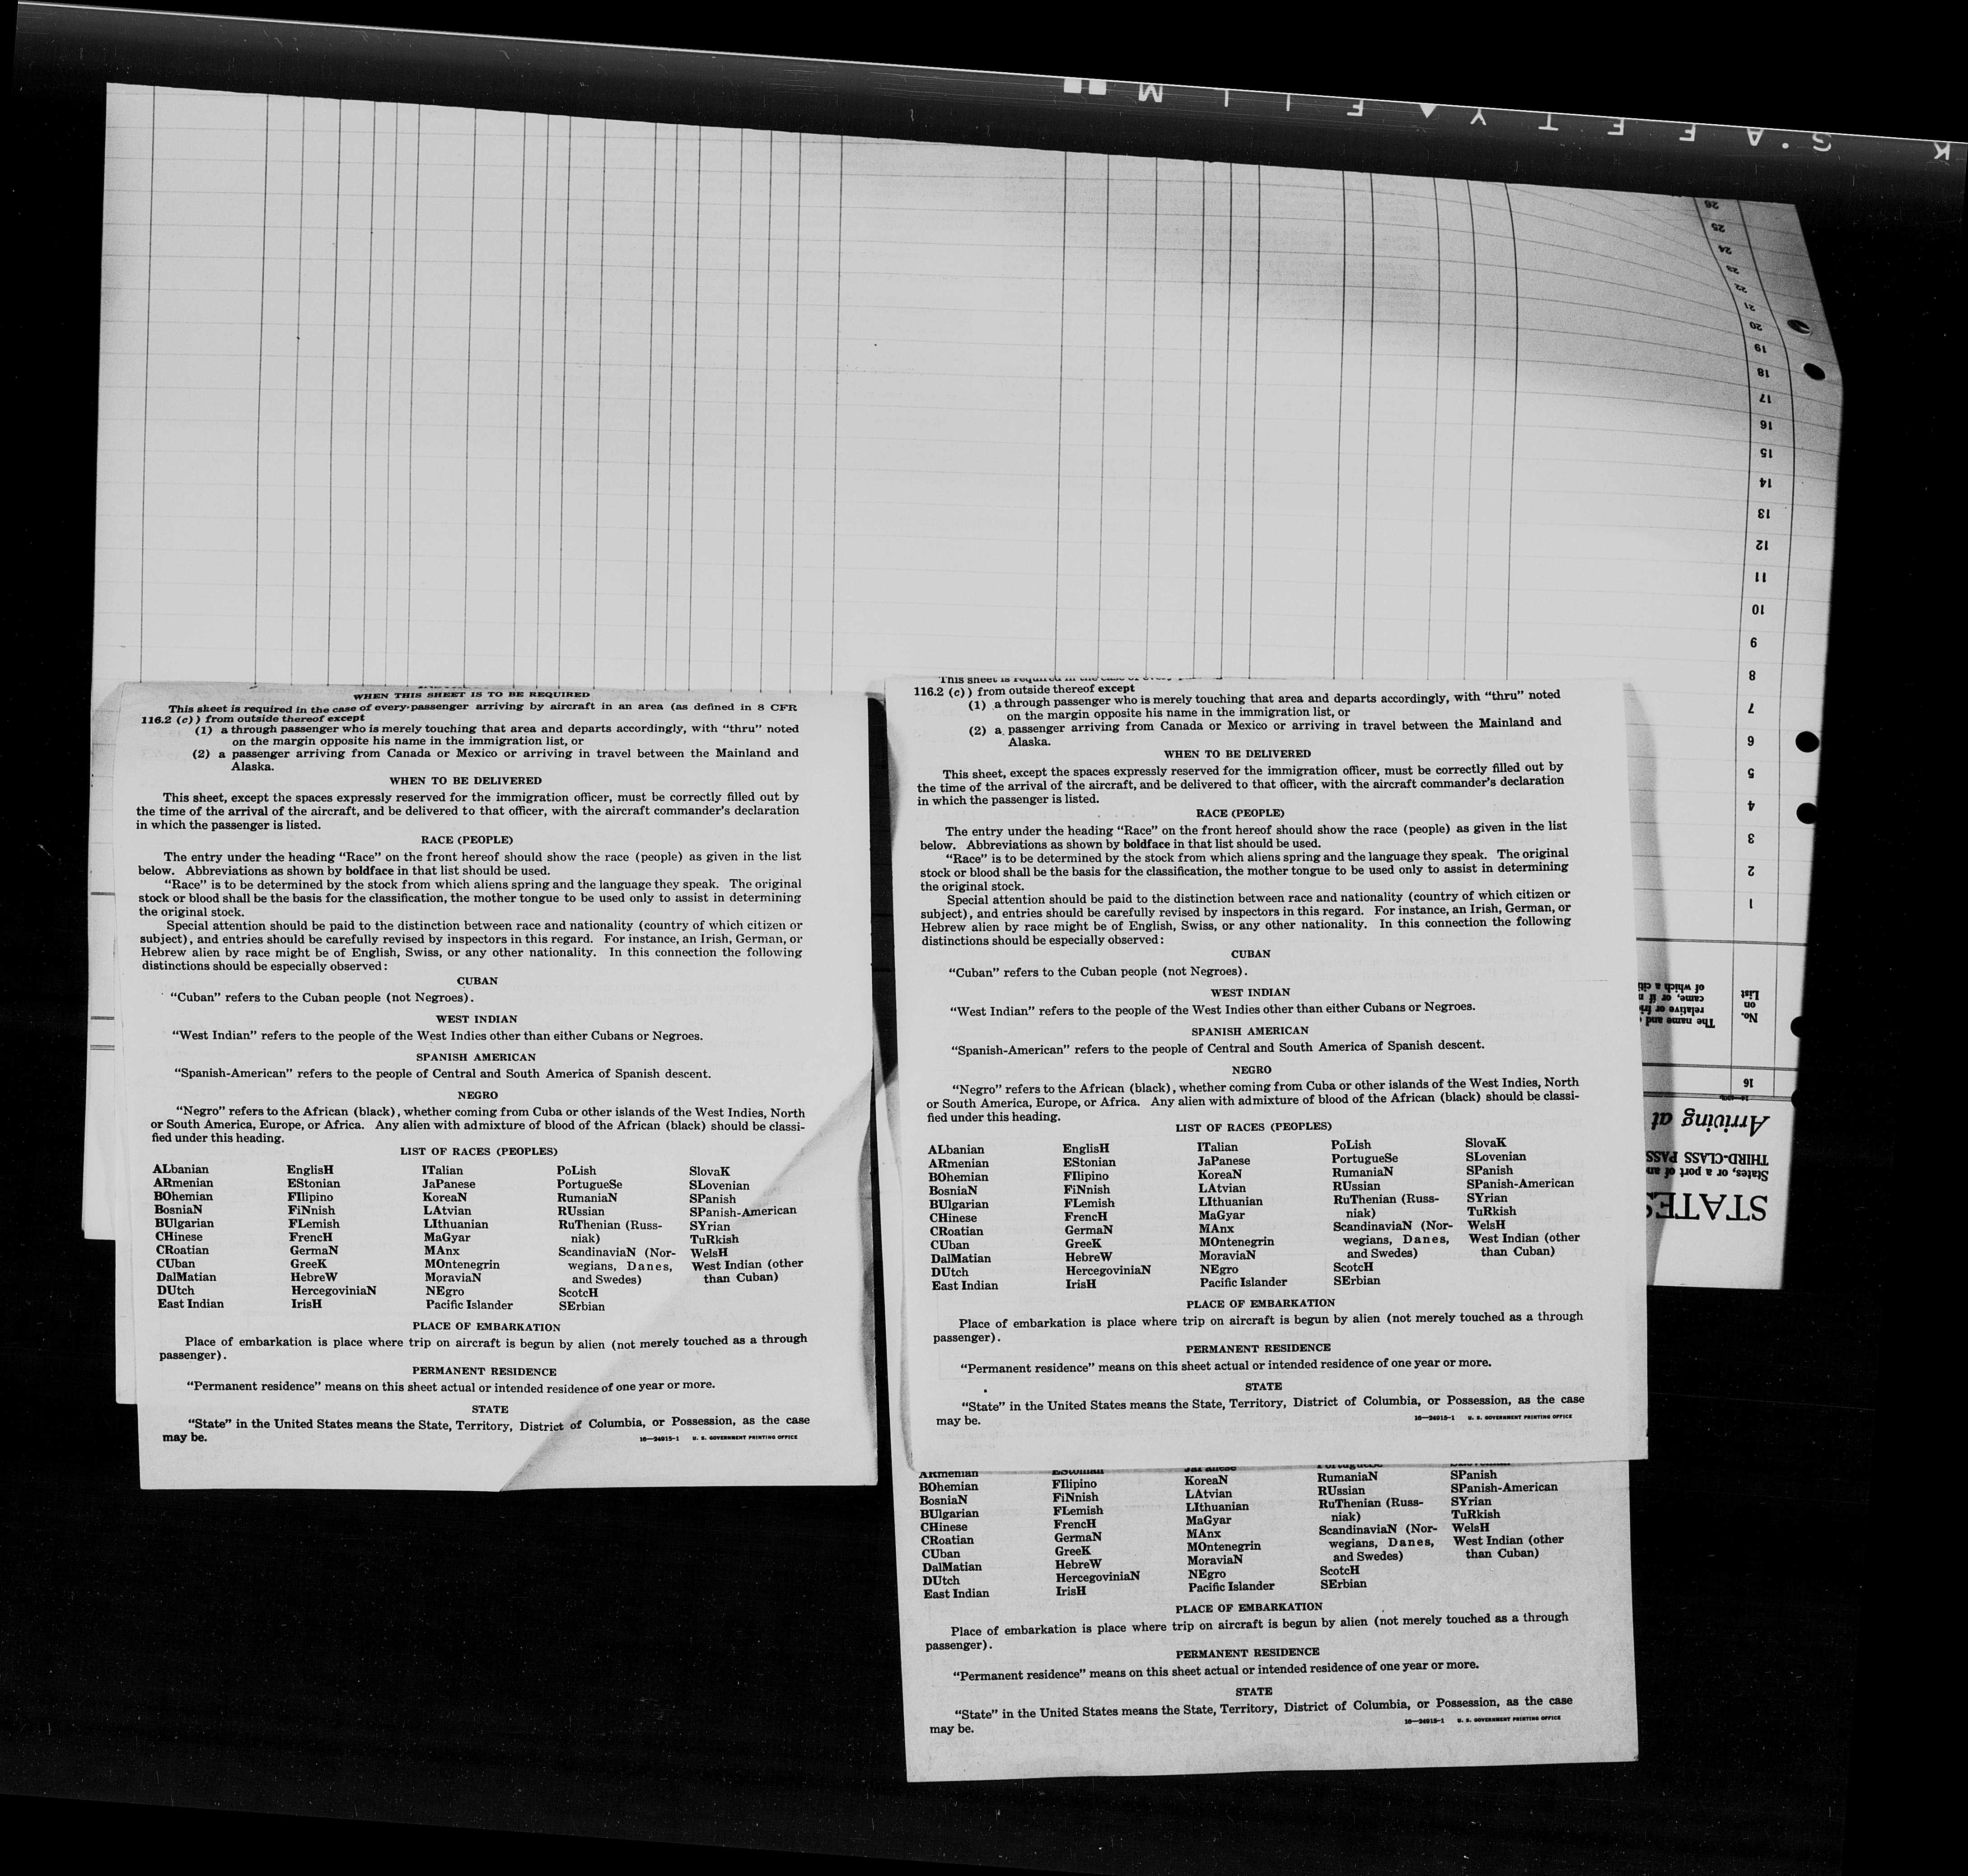 K G. A F E T Y ▲ F I L M
WHEN THIS SHEET IS TO BE REQUIRED
This sheet is required in the case of every passenger arriving by aircraft in an area (as defined in 8 CFR
116.2 (c)) from outside thereof except
(1) a through passenger who is merely touching that area and departs accordingly, with “thru” noted
on the margin opposite his name in the immigration list, or
(2) a passenger arriving from Canada or Mexico or arriving in travel between the Mainland and
Alaska.
WHEN TO BE DELIVERED
This sheet, except the spaces expressly reserved for the immigration officer, must be correctly filled out by
the time of the arrival of the aircraft, and be delivered to that officer, with the aircraft commander’s declaration
in which the passenger is listed.
RACE (PEOPLE)
The entry under the heading “Race” on the front hereof should show the race (people) as given in the list
below. Abbreviations as shown by boldface in that list should be used.
“Race” is to be determined by the stock from which aliens spring and the language they speak. The original
stock or blood shall be the basis for the classification, the mother tongue to be used only to assist in determining
the original stock.
Special attention should be paid to the distinction between race and nationality (country of which citizen or
subject), and entries should be carefully revised by inspectors in this regard. For instance, an Irish, German, or
Hebrew alien by race might be of English, Swiss, or any other nationality. In this connection the following
distinctions should be especially observed:
CUBAN
“Cuban” refers to the Cuban people (not Negroes).
WEST INDIAN
“West Indian” refers to the people of the West Indies other than either Cubans or Negroes.
SPANISH AMERICAN
“Spanish-American” refers to the people of Central and South America of Spanish descent.
NEGRO
“Negro” refers to the African (black), whether coming from Cuba or other islands of the West Indies, North
or South America, Europe, or Africa. Any alien with admixture of blood of the African (black) should be classi-
fied under this heading.
LIST OF RACES (PEOPLES)
ALbanian
ARmenian
BOhemian
BosniaN
BUlgarian
CHinese
CRoatian
CUban
DalMatian
DUtch
East Indian
EnglisH
EStonian
FIlipino
FiNnish
FLemish
FrencH
GermaN
GreeK
HebreW
HercegoviniaN
IrisH
ITalian
JaPanese
KoreaN
LAtvian
LIthuanian
MaGyar
MAnx
MOntenegrin
MoraviaN
NEgro
Pacific Islander
PoLish
PortugueSe
RumaniaN
RUssian
RuThenian (Russ-
niak)
ScandinaviaN (Nor-
wegians, Danes,
and Swedes)
ScotcH
SErbian
SlovaK
SLovenian
SPanish
SPanish-American
SYrian
TuRkish
WelsH
West Indian (other
than Cuban)
PLACE OF EMBARKATION
Place of embarkation is place where trip on aircraft is begun by alien (not merely touched as a through
passenger).
PERMANENT RESIDENCE
“Permanent residence” means on this sheet actual or intended residence of one year or more.
STATE
“State” in the United States means the State, Territory, District of Columbia, or Possession, as the case
may be.
16—24915-1 U. S. GOVERNMENT PRINTING OFFICE
This sheet is required in the case of every
116.2 (c)) from outside thereof except
(1) a through passenger who is merely touching that area and departs accordingly, with “thru” noted
on the margin opposite his name in the immigration list, or
(2) a passenger arriving from Canada or Mexico or arriving in travel between the Mainland and
Alaska.
WHEN TO BE DELIVERED
This sheet, except the spaces expressly reserved for the immigration officer, must be correctly filled out by
the time of the arrival of the aircraft, and be delivered to that officer, with the aircraft commander’s declaration
in which the passenger is listed.
RACE (PEOPLE)
The entry under the heading “Race” on the front hereof should show the race (people) as given in the list
below. Abbreviations as shown by boldface in that list should be used.
“Race” is to be determined by the stock from which aliens spring and the language they speak. The original
stock or blood shall be the basis for the classification, the mother tongue to be used only to assist in determining
the original stock.
Special attention should be paid to the distinction between race and nationality (country of which citizen or
subject), and entries should be carefully revised by inspectors in this regard. For instance, an Irish, German, or
Hebrew alien by race might be of English, Swiss, or any other nationality. In this connection the following
distinctions should be especially observed:
CUBAN
“Cuban” refers to the Cuban people (not Negroes).
WEST INDIAN
“West Indian” refers to the people of the West Indies other than either Cubans or Negroes.
SPANISH AMERICAN
“Spanish-American” refers to the people of Central and South America of Spanish descent.
NEGRO
“Negro” refers to the African (black), whether coming from Cuba or other islands of the West Indies, North
or South America, Europe, or Africa. Any alien with admixture of blood of the African (black) should be classi-
fied under this heading.
LIST OF RACES (PEOPLES)
ALbanian
ARmenian
BOhemian
BosniaN
BUlgarian
CHinese
CRoatian
CUban
DalMatian
DUtch
East Indian
EnglisH
EStonian
FIlipino
FiNnish
FLemish
FrencH
GermaN
GreeK
HebreW
HercegoviniaN
IrisH
ITalian
JaPanese
KoreaN
LAtvian
LIthuanian
MaGyar
MAnx
MOntenegrin
MoraviaN
NEgro
Pacific Islander
PoLish
PortugueSe
RumaniaN
RUssian
RuThenian (Russ-
niak)
ScandinaviaN (Nor-
wegians, Danes,
and Swedes)
ScotcH
SErbian
SlovaK
SLovenian
SPanish
SPanish-American
SYrian
TuRkish
WelsH
West Indian (other
than Cuban)
PLACE OF EMBARKATION
Place of embarkation is place where trip on aircraft is begun by alien (not merely touched as a through
passenger).
PERMANENT RESIDENCE
“Permanent residence” means on this sheet actual or intended residence of one year or more.
STATE
“State” in the United States means the State, Territory, District of Columbia, or Possession, as the case
may be.
16—24915-1 U. S. GOVERNMENT PRINTING OFFICE
ARmenian
BOhemian
BosniaN
BUlgarian
CHinese
CRoatian
CUban
DalMatian
DUtch
East Indian
EStonian
FIlipino
FiNnish
FLemish
FrencH
GermaN
GreeK
HebreW
HercegoviniaN
IrisH
JaPanese
KoreaN
LAtvian
LIthuanian
MaGyar
MAnx
MOntenegrin
MoraviaN
NEgro
Pacific Islander
PortugueSe
RumaniaN
RUssian
RuThenian (Russ-
niak)
ScandinaviaN (Nor-
wegians, Danes,
and Swedes)
ScotcH
SErbian
SPanish
SPanish-American
SYrian
TuRkish
WelsH
West Indian (other
than Cuban)
PLACE OF EMBARKATION
Place of embarkation is place where trip on aircraft is begun by alien (not merely touched as a through
passenger).
PERMANENT RESIDENCE
“Permanent residence” means on this sheet actual or intended residence of one year or more.
STATE
“State” in the United States means the State, Territory, District of Columbia, or Possession, as the case
may be.
16—24915-1 U. S. GOVERNMENT PRINTING OFFICE
STATES
States, or a port of an
THIRD-CLASS PASS
Arriving at
16
No.
on
List
The name and
relative or
came, or if
of which a
1
2
3
4
5
6
7
8
9
10
11
12
13
14
15
16
17
18
19
20
21
22
23
24
25
26